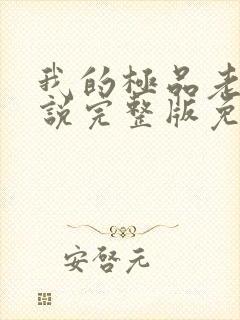 我的極品老
說完整版免
安啓元